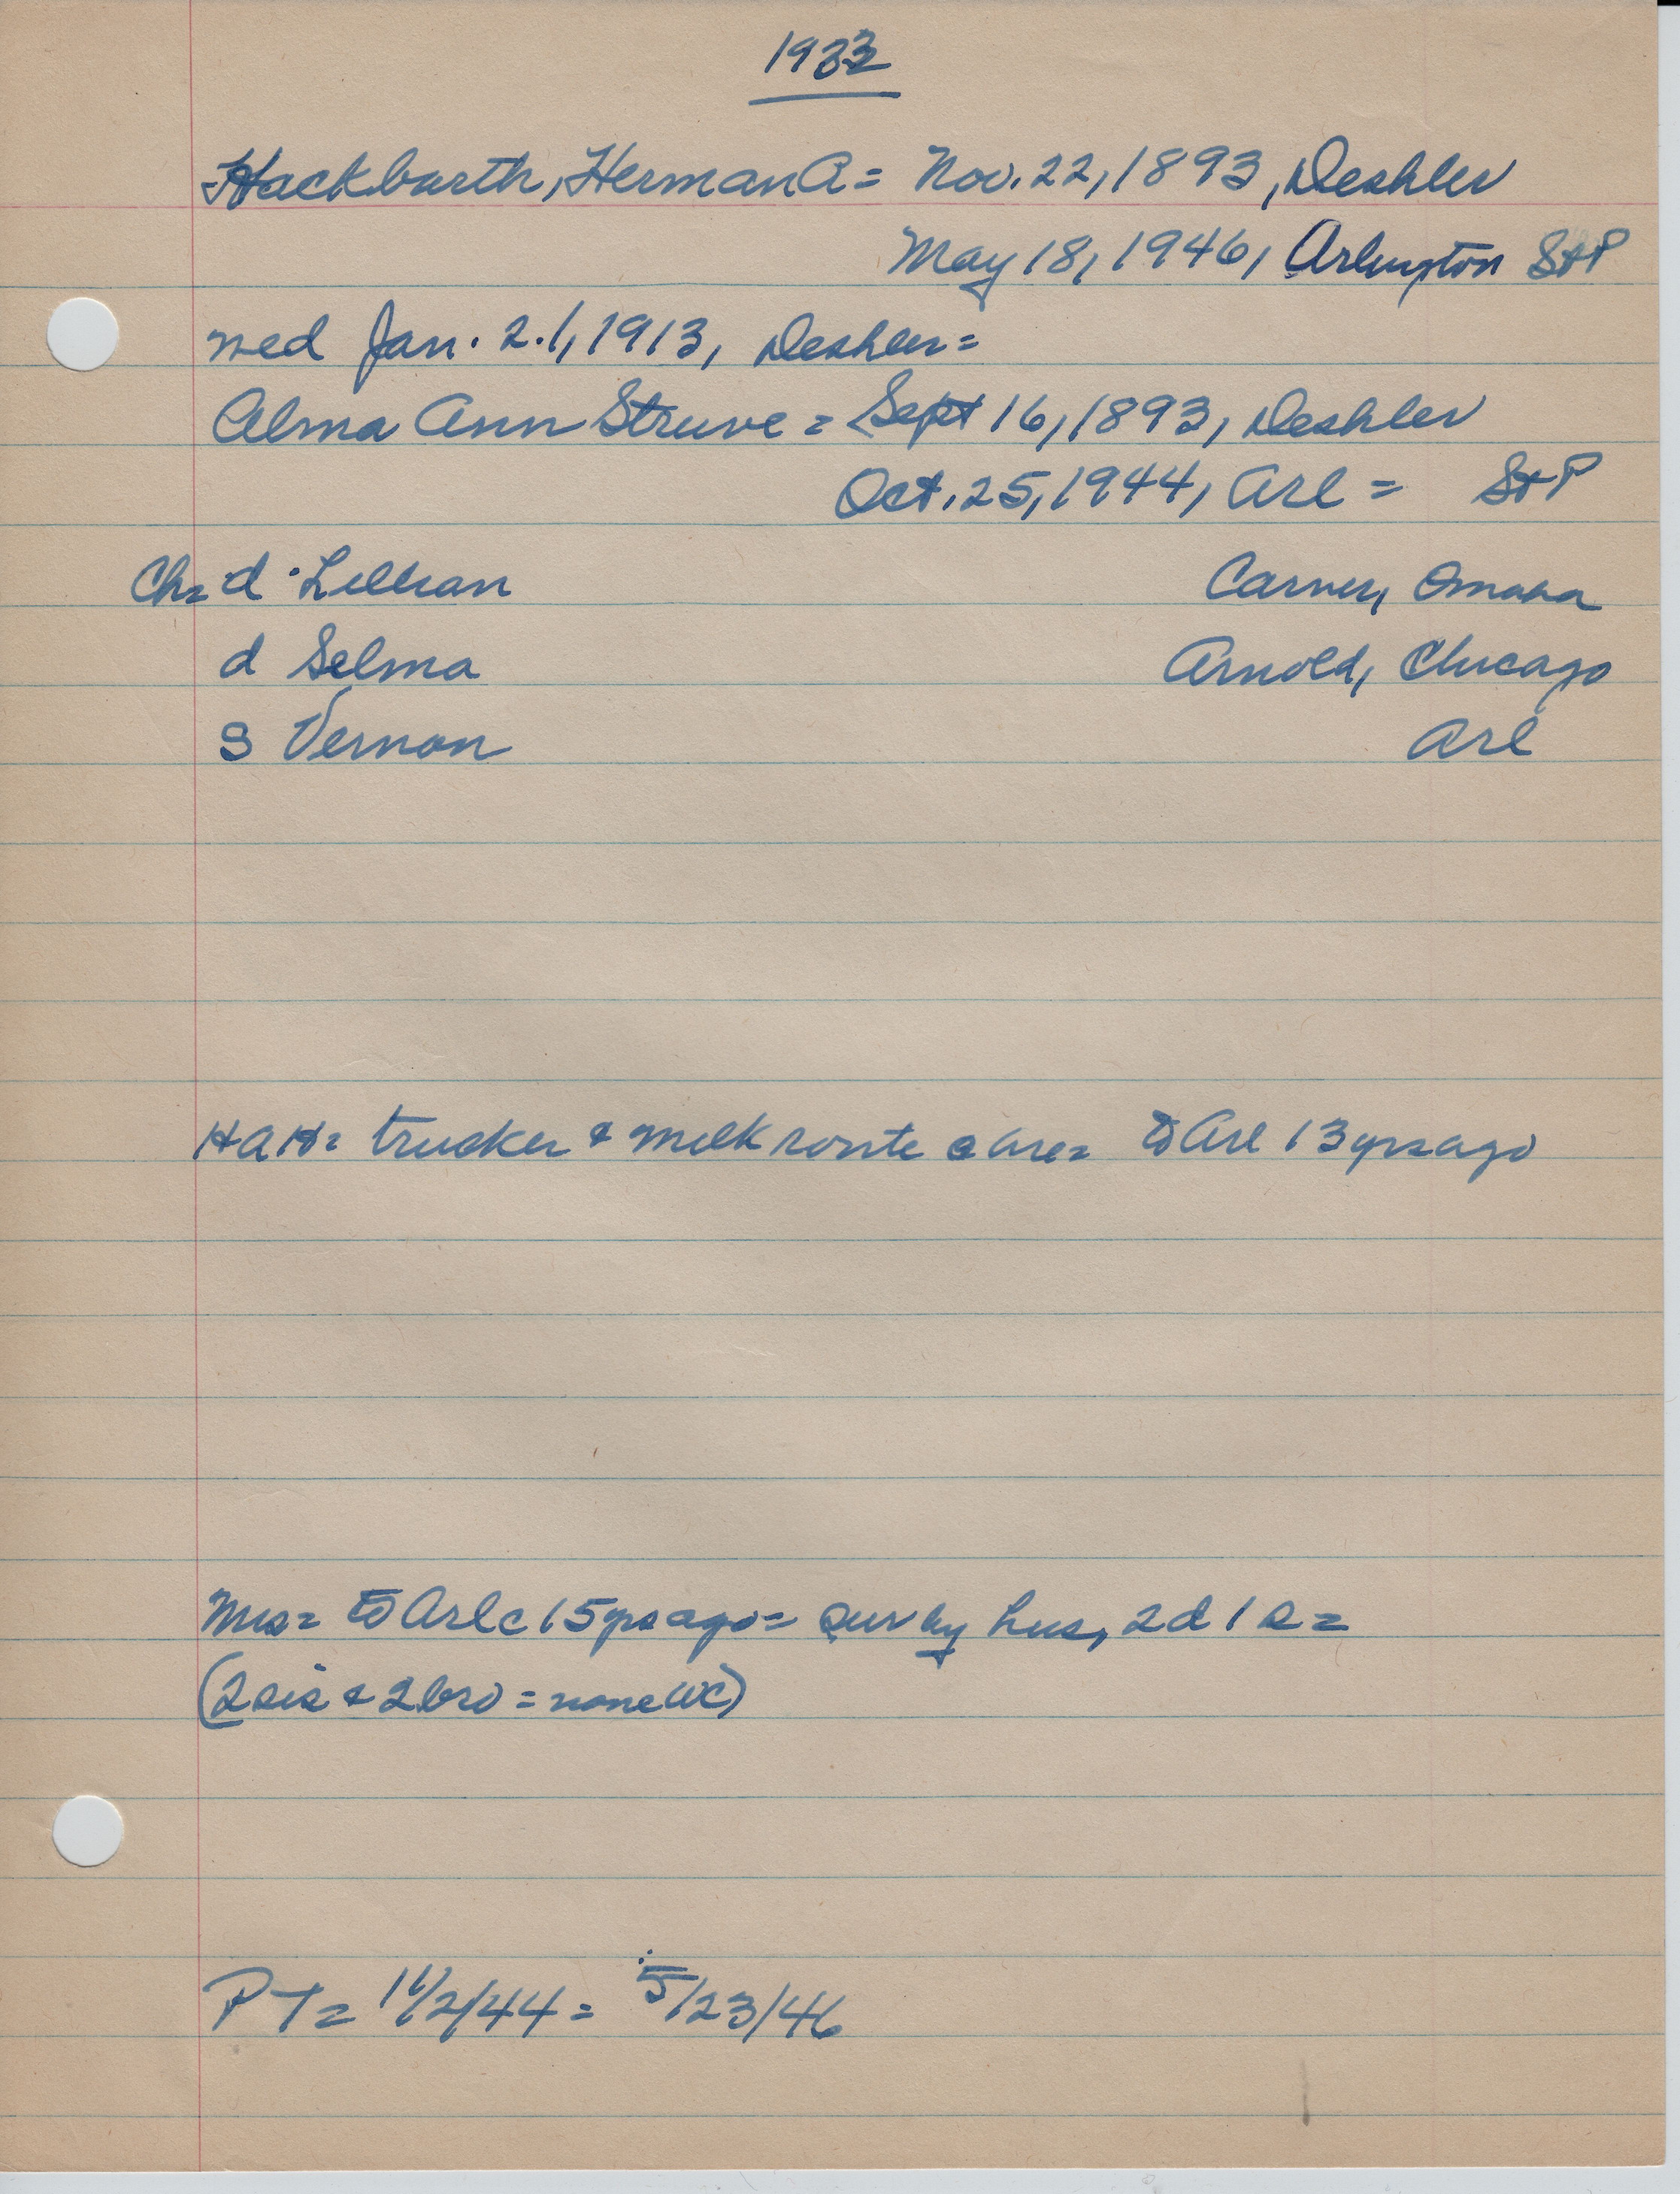 1933
Hackbarth, Herman A = Nov. 22, 1893, Deshler
May 18, 1946, Arlington St P
med Jan. 2.1, 1913, Deshler =
Alma Ann Struve = Sept 16, 1893, Deshler
Oct. 25, 1944, Arl = St P
Ch = d Lillian Carver, Omaha
d Selma Arnold, Chicago
s Vernon Arl
HAH = trucker & milk route = to Arl 13 yrs ago
Mrs = to Arl c 15 yrs ago = surv by hus, 2 d 1 s =
(2 sis & 2 bro = none WC)
PT = 11/2/44 = 5/23/46